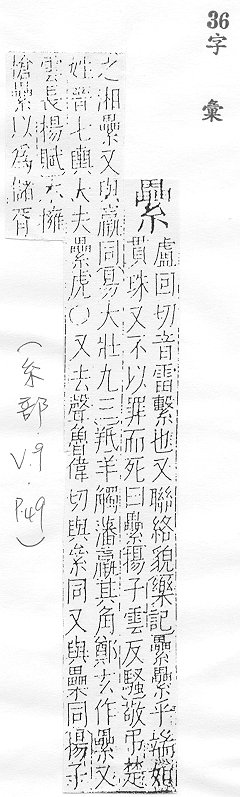 36字　彙
纍
盧回切音雷繫也又聯絡貌樂記纍纍乎端如
貫珠又不以罪而死曰纍揚子雲反騷敬弔楚
之湘纍又與羸同易大壯九三羝羊觸藩羸其角鄭玄作纍又
姓晉七輿大夫纍虎〇又去聲魯偉切與絫同又與壘同揚子
雲長揚賦木擁
槍纍以爲儲胥
(糸部.V.9.P49)